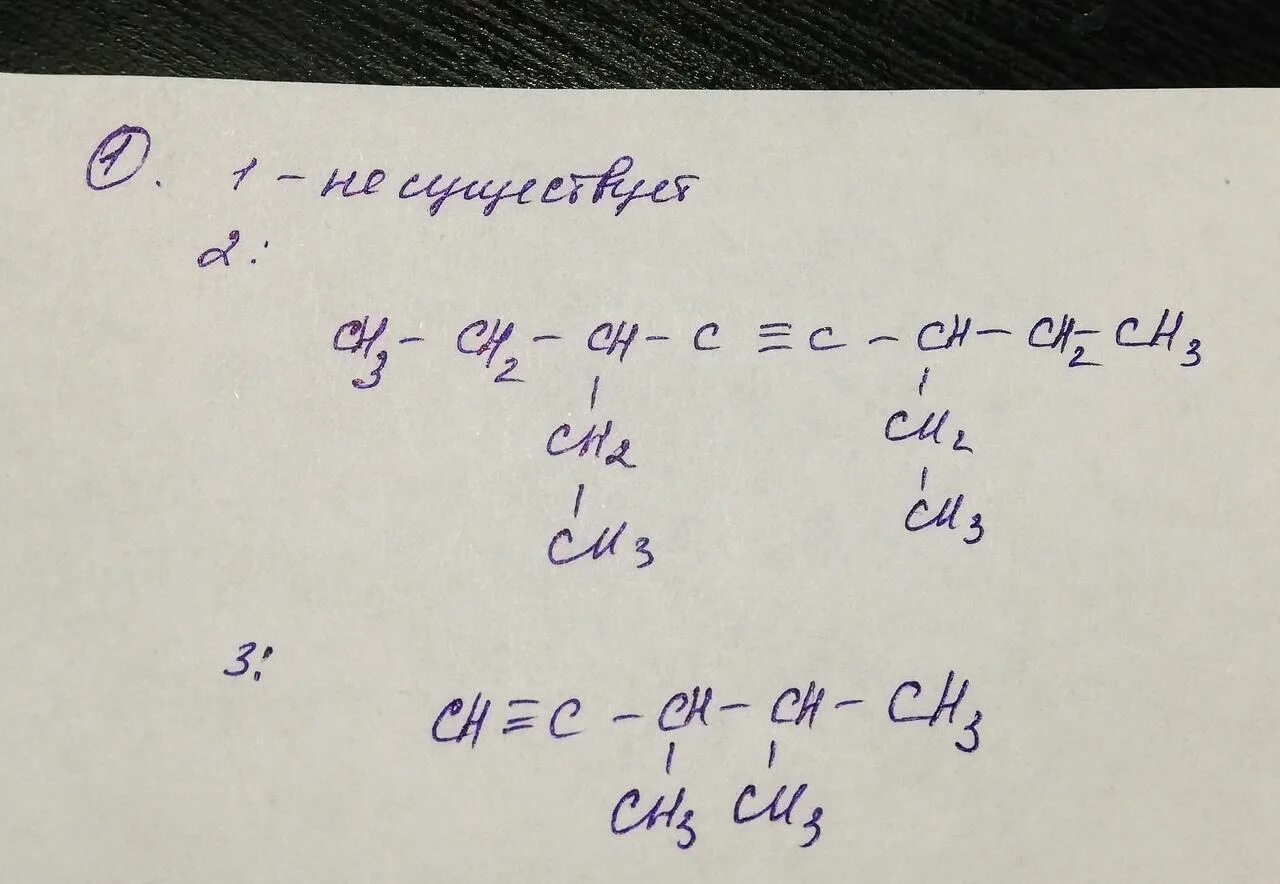 1. 1 – не существует
2:
CH3 – CH2 – CH – C ≡ C – CH – CH2 – CH3
CH2 CH2
CH3 CH3
3:
CH ≡ C – CH – CH – CH3
CH3 CH3